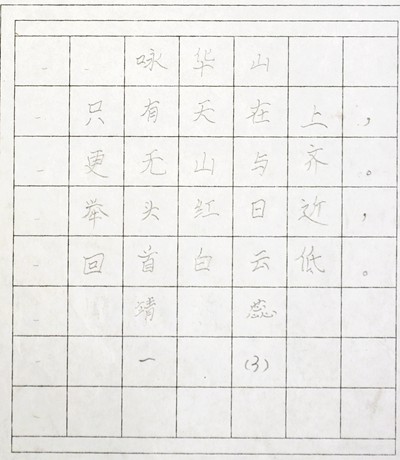 咏华山
只有天在上，
更无山与齐。
举头红日近，
回首白云低。
靖蕊
一(3)